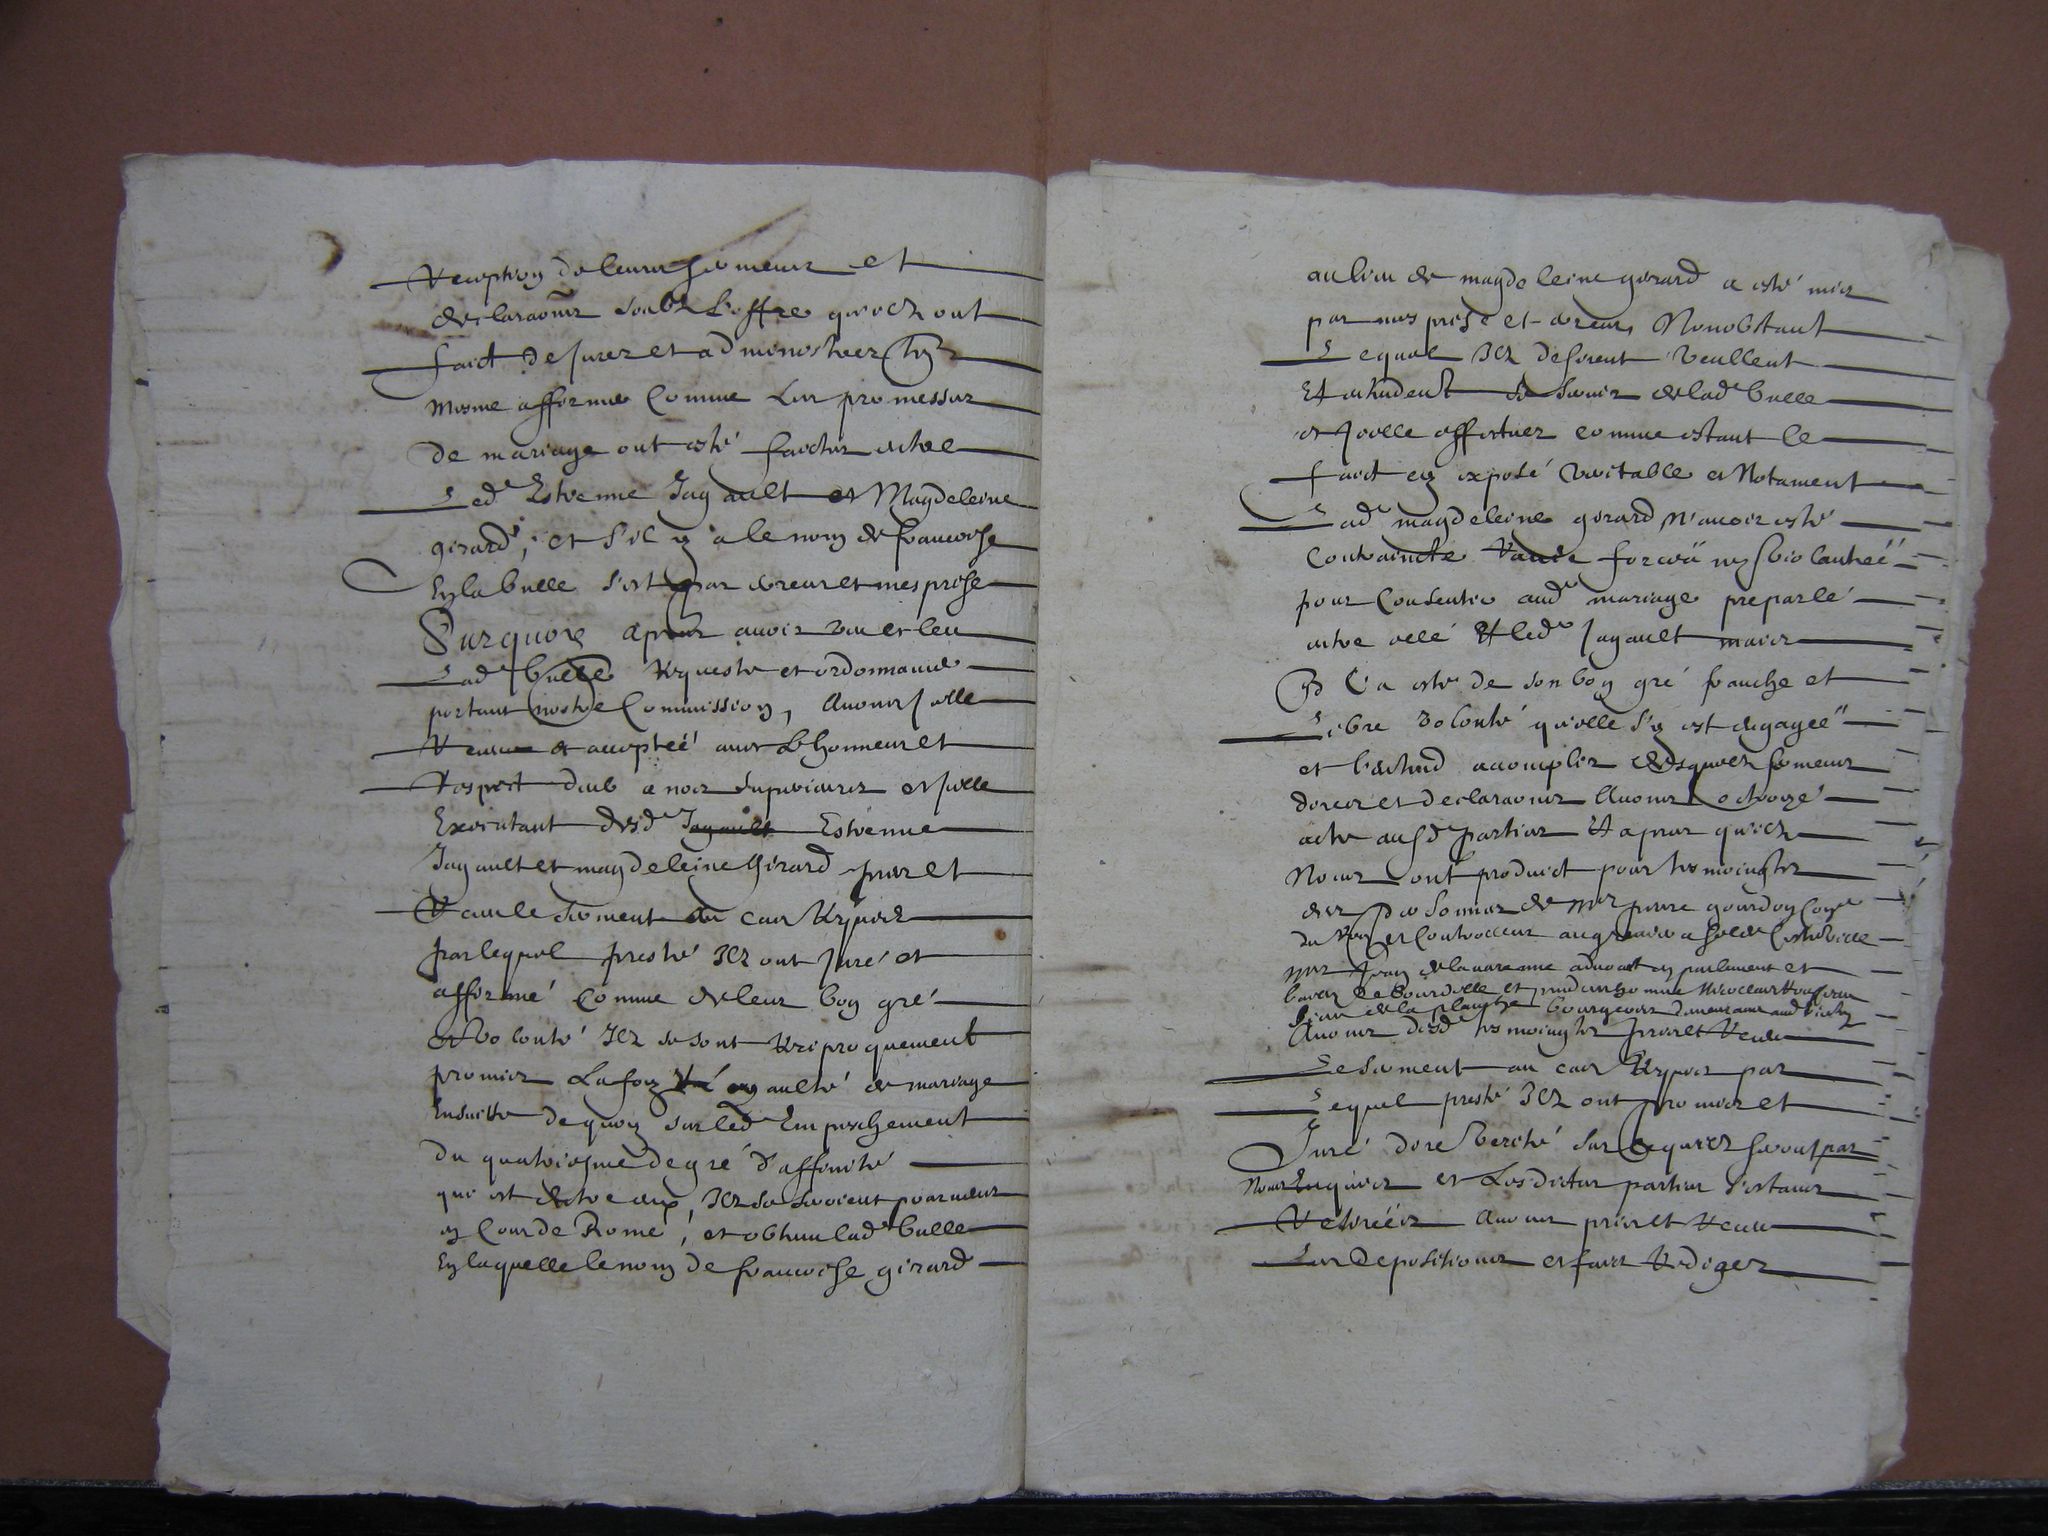 Reception de leurs sermens et
declaraons soubz L'offre qu'ilz ont
faict de jurer et administrer
mesme affermer Comme Les promesses
de mariage ont esté faictes entre
Led Estienne Jagault et Magdeleine
girard, et s'il y a le nom de francoise
En la bulle s'est par erreur et mesprise
Surquoy apres avoir veu et leu
Lad bulle Requeste et ordonnance
portant nostre Commission, Avons Jcelle
Receue et acceptée avec L'honneur et
Respect deub a nos superieurs et Jcelle
Executant desd Jagault Estienne
Jagault et magdeleine Girard pris et
Receu le serment au cas Requis
par lequel presté Ilz ont Juré et
affermé Comme de leur bon gré
et volonté Ilz se sont Reciproquement
promis La foy et loyaulté de mariage
Ensuitte de quoy sur led Empeschement
du quatriesme degré d'affinité
qui est entre eux, Ilz se seroient pourveus
en Cour de Rome, et obtenu lad bulle
En laquelle le nom de francoise girard
au lieu de magdeleine girard a esté mis
par mesprise et erreur, Nonobstant
Lequel Ilz desirent veullent
Et entendent se servir de lad bulle
et Jcelle effectuer comme estant le
faict en exposé veritable et Notament
Lad magdeleine girard N'avoir esté
Contraincte Ravie forcée ny violentée
pour Consentir aud mariage preparlé
entre elle Et led Jagault mais
Que C'a esté de son bon gré franche et
Libre volonté qu'elle s'y est engagée
et l'entend acomplir desquelz sermens
dires et declaraons Avons octroyé
acte ausd parties Et apres qu'ilz
Nous ont produict pour tesmoingtz
des personnes de Mes pierre gourdon Coner
du Roy et Controlleur au grenier a sel de Ceste ville
Me Jean de la varenne advocat en parlement et
bourgeois demeurans aud
Avons desd tesmoingtz pris et Receu
Le serment au cas Requis par
Lequel presté Ilz ont promis et
Juré dire verité sur ce qu'ilz seront par
Nous Enquis et Lesdictes parties s'estans
Retirées Avons pris et Receu
Les depositions et faict Rediger